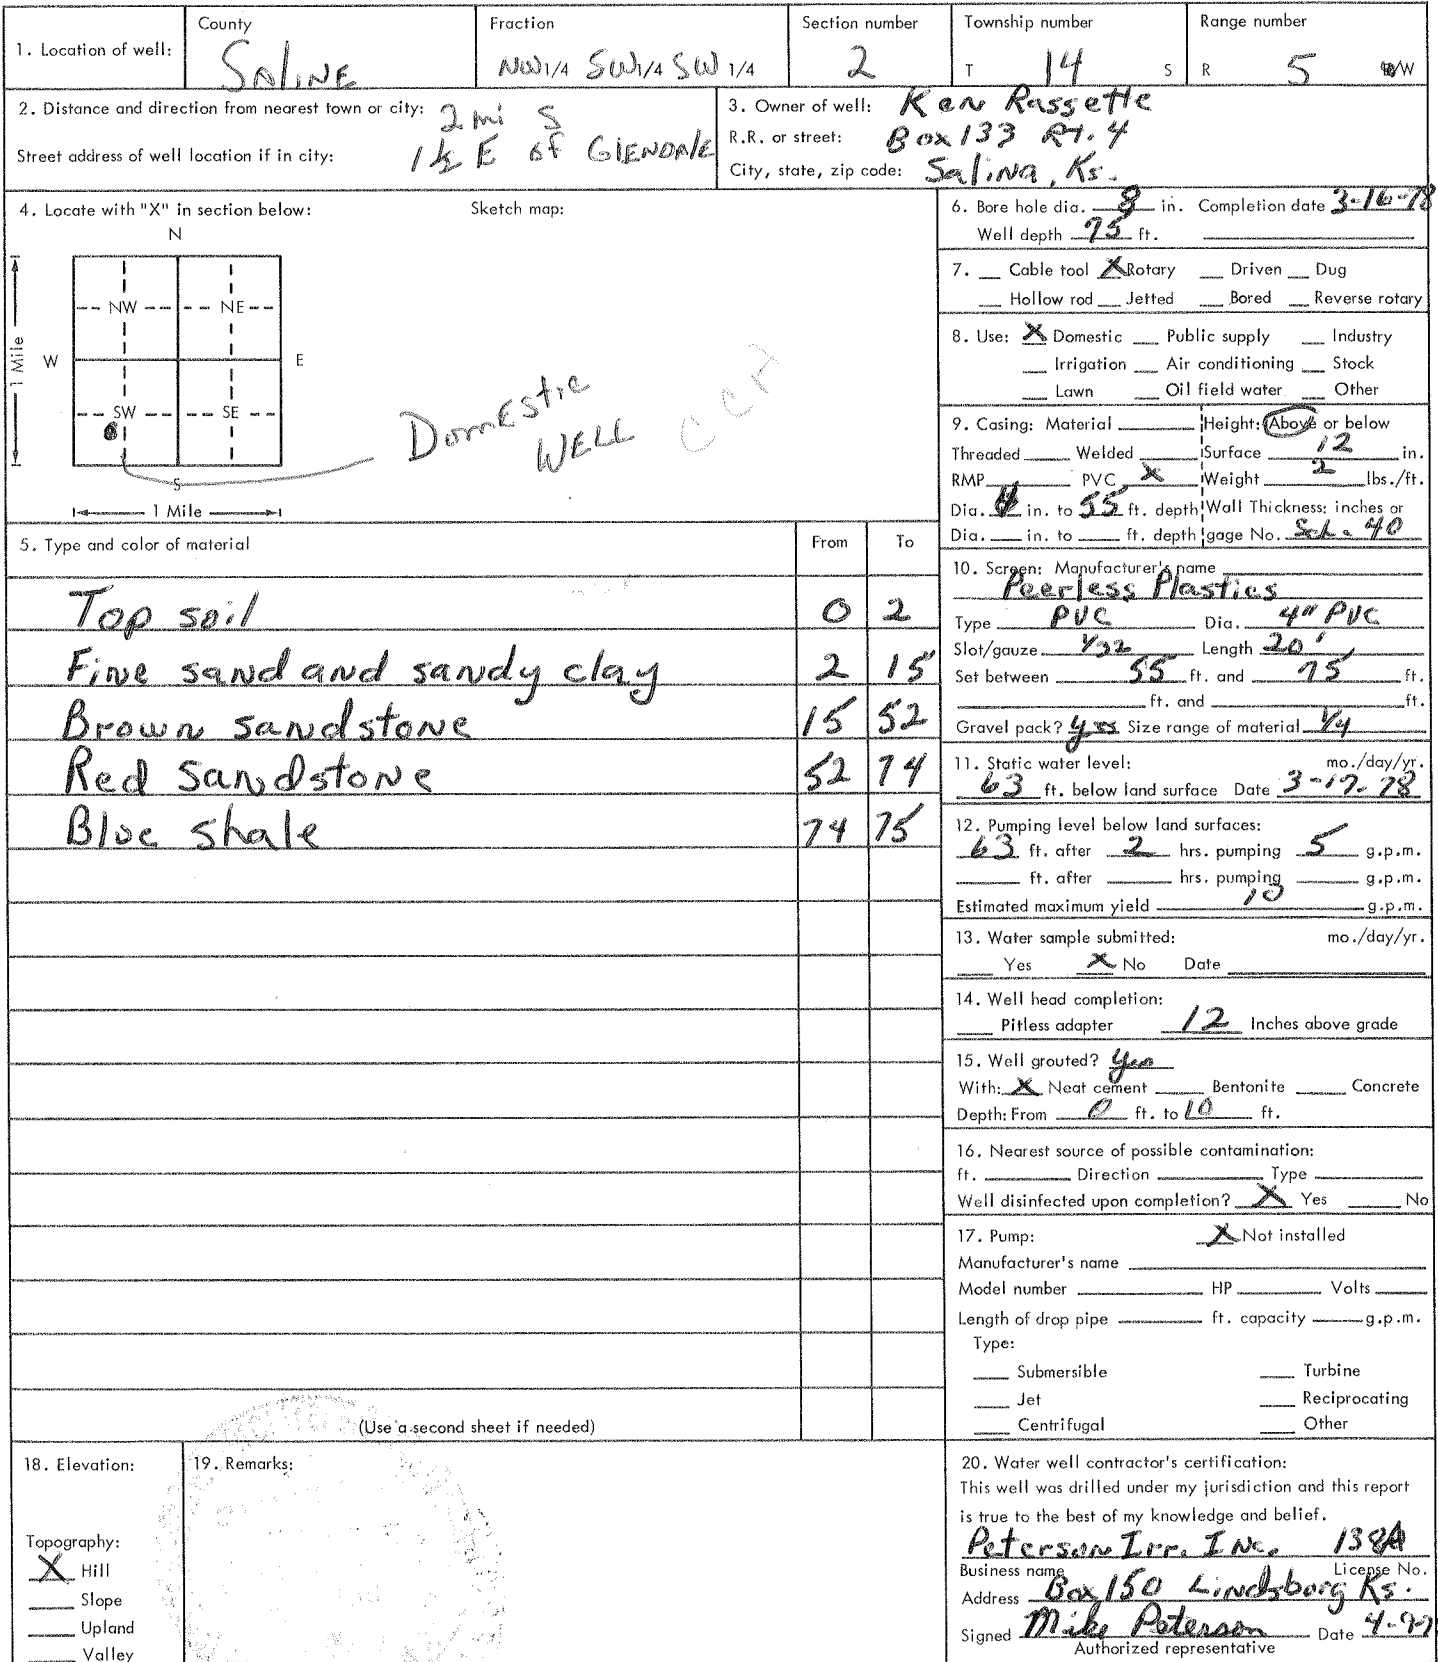 1. Location of well: County Fraction Section number Township number Range number
Saline NW 1/4 SW 1/4 SW 1/4 2 T 14 S R 5 W
2. Distance and direction from nearest town or city: 2 mi S
Street address of well location if in city: 1 1/2 E of Glendale
3. Owner of well: Ken Rassette
R.R. or street: Box 133 Rt. 4
City, state, zip code: Salina, Ks.
4. Locate with "X" in section below: Sketch map:
N
NW NE
W E
1 Mile
SW SE
S
1 Mile
Domestic
WELL
5. Type and color of material From To
Top soil 0 2
Fine sand and sandy clay 2 15
Brown sandstone 15 52
Red sandstone 52 74
Blue shale 74 75
(Use a second sheet if needed)
6. Bore hole dia. 8 in. Completion date 3-16-78
Well depth 75 ft.
7. Cable tool X Rotary Driven Dug
Hollow rod Jetted Bored Reverse rotary
8. Use: X Domestic Public supply Industry
Irrigation Air conditioning Stock
Lawn Oil field water Other
9. Casing: Material Height: Above or below
Threaded Welded Surface 12 in.
RMP PVC X Weight 2 lbs./ft.
Dia. 4 in. to 55 ft. depth Wall Thickness: inches or
Dia. in. to ft. depth gage No. Sch. 40
10. Screen: Manufacturer's name
Peerless Plastics
Type PVC Dia. 4" PVC
Slot/gauze 1/32 Length 20'
Set between 55 ft. and 75 ft.
ft. and ft.
Gravel pack? yes Size range of material 1/4
11. Static water level: mo./day/yr.
63 ft. below land surface Date 3-17-78
12. Pumping level below land surfaces:
63 ft. after 2 hrs. pumping 5 g.p.m.
ft. after hrs. pumping g.p.m.
Estimated maximum yield 10 g.p.m.
13. Water sample submitted: mo./day/yr.
Yes X No Date
14. Well head completion:
Pitless adapter 12 Inches above grade
15. Well grouted? yes
With: X Neat cement Bentonite Concrete
Depth: From 0 ft. to 10 ft.
16. Nearest source of possible contamination:
ft. Direction Type
Well disinfected upon completion? X Yes No
17. Pump: X Not installed
Manufacturer's name
Model number HP Volts
Length of drop pipe ft. capacity g.p.m.
Type:
Submersible Turbine
Jet Reciprocating
Centrifugal Other
18. Elevation:
Topography:
X Hill
Slope
Upland
Valley
19. Remarks:
20. Water well contractor's certification:
This well was drilled under my jurisdiction and this report
is true to the best of my knowledge and belief.
Peterson Irr. Inc. 138A
Business name License No.
Address Box 150 Lindsborg Ks.
Signed Mike Peterson Date 4-9-7
Authorized representative